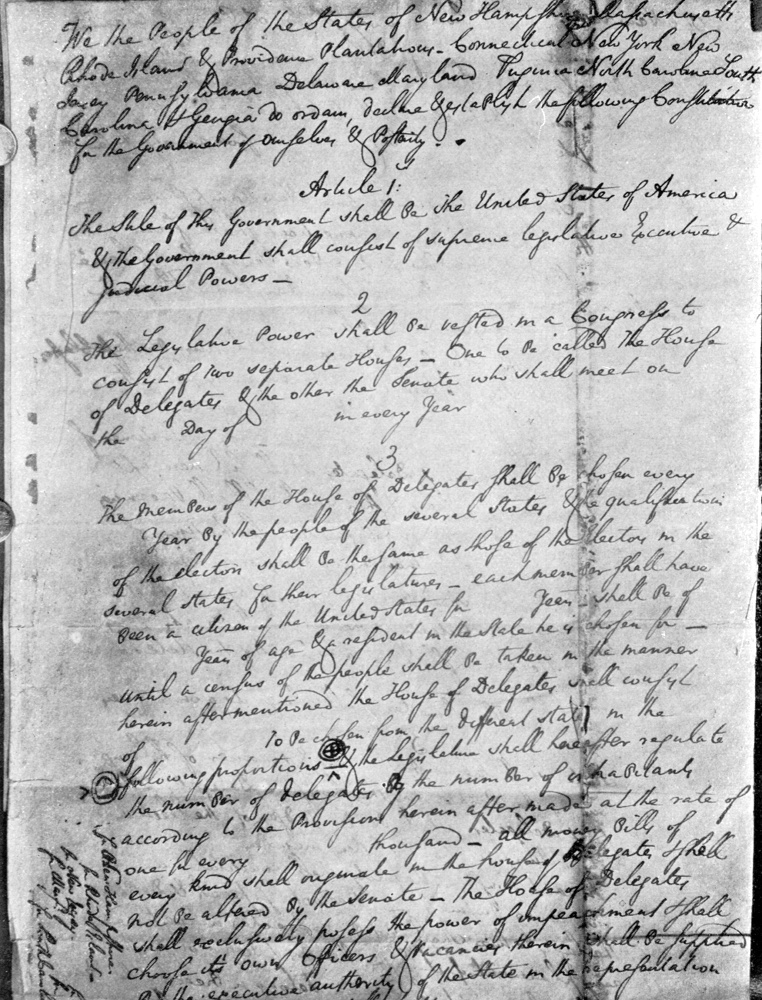 We the People of the States of New Hampshire Massachusetts
Rhode Island & Providence Plantations - Connecticut New York New
Jersey Pennsylvania Delaware Maryland Virginia North Carolina South
Carolina & Georgia do ordain, declare & establish the following Constitution
for the Government of Ourselves & Posterity.
Article 1:
The Stile of This Government shall Be The United States of America
& the Government shall consist of supreme legislative Executive &
Judicial Powers —
2
The Legislative Power shall Be vested in a Congress to
consist of two separate Houses — One to Be called The House
of Delegates & the other the Senate who shall meet on
the Day of in every Year
3
The members of the House of Delegates shall Be chosen every
Year By the people of the several States & the qualification
of the electors shall Be the same as those of the Electors in the
several States for their legislatures — each member shall have
Been a citizen of the United States for Years — shall Be of
Years of age & a resident in the State he is chosen for —
Until a census of the people shall Be taken in the manner
herein after mentioned the House of Delegates shall consist
of To Be chosen from the different states in the
following proportions — & the Legislature shall hereafter regulate
the number of delegates By the number of inhabitants
according to the Provisions herein after made at the rate of
one for every thousand — all money Bills of
every kind shall originate in the house of Delegates & shall
not Be altered By the Senate — The House of Delegates
shall exclusively possess the power of impeachment & shall
choose its own Officers & vacancies therein shall Be supplied
By the executive authority of the State in the representation
for New Hampshire
for Rhode Island